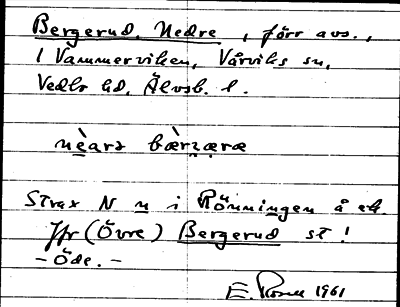 Bergerud, Nedre, förr avs.,
I Vammerviken, Vårviks sn,
Vedbo hd, Älvsb. l.
nèarə bæ̀rʐæræ
Strax N n i Rönningen å ek.
Jfr (Övre) Bergerud st!
- Öde. -
E. Rosell 1961